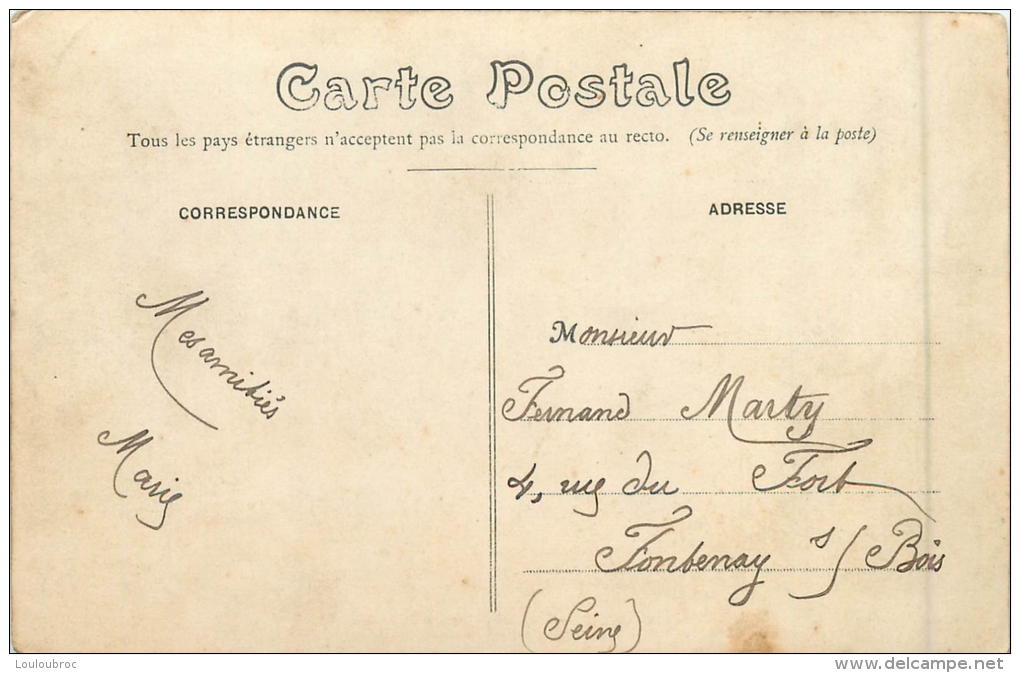 Carte Postale
Tous les pays étrangers n'acceptent pas la correspondance au recto. (Se renseigner à la poste)
CORRESPONDANCE
ADRESSE
Mes amitiés
Marie
Monsieur
Fernand Marty
4, rue du Fort
Fontenay s/ Bois
(Seine)
Louloubroc
www.delcampe.net